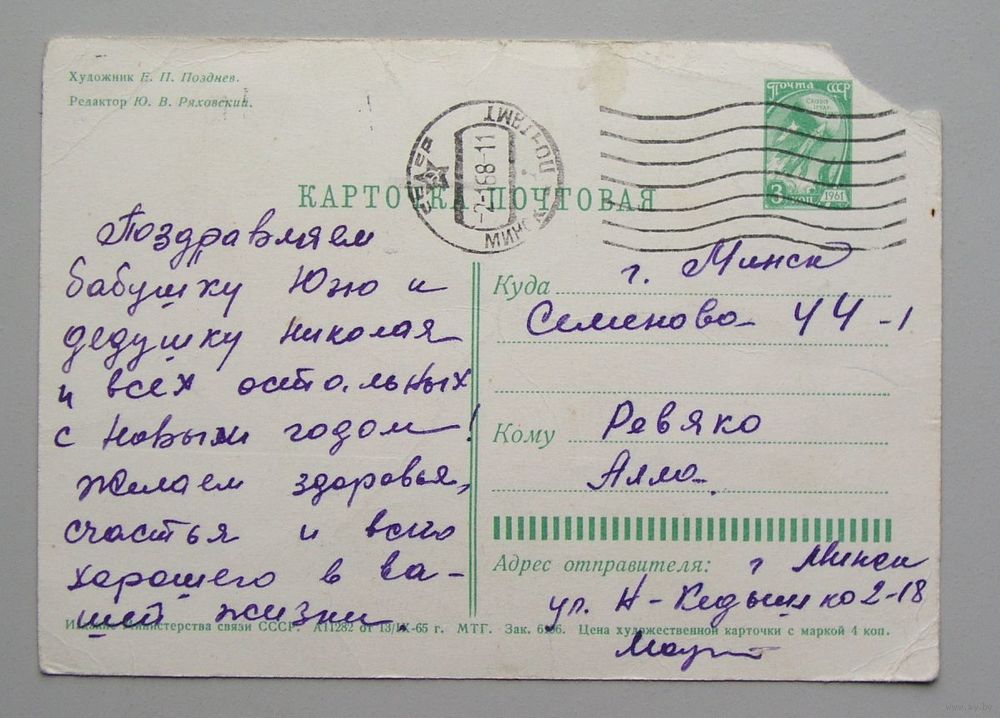 Художник Е. П. Позднев.
Редактор Ю. В. Ряховский.
ПОЧТА СССР
3 КОП 1961
МИНСК ПОЧТАМТ
2-1 68-11
КАРТОЧКА ПОЧТОВАЯ
Поздравляем
бабушку Юзю и
дедушку Николая
и всех остальных
с Новым годом!
Желаем здоровья,
счастья и всего
хорошего в ва-
шей жизни
Куда г. Минск
Семенова 44-1
Кому Ревяко
Алла.
Адрес отправителя: г Минск
ул. Н-Кедышко 2-18
Издание Министерства связи СССР. А11282 от 13/IX-65 г. МТГ. Зак. Цена художественной карточки с маркой 4 коп.